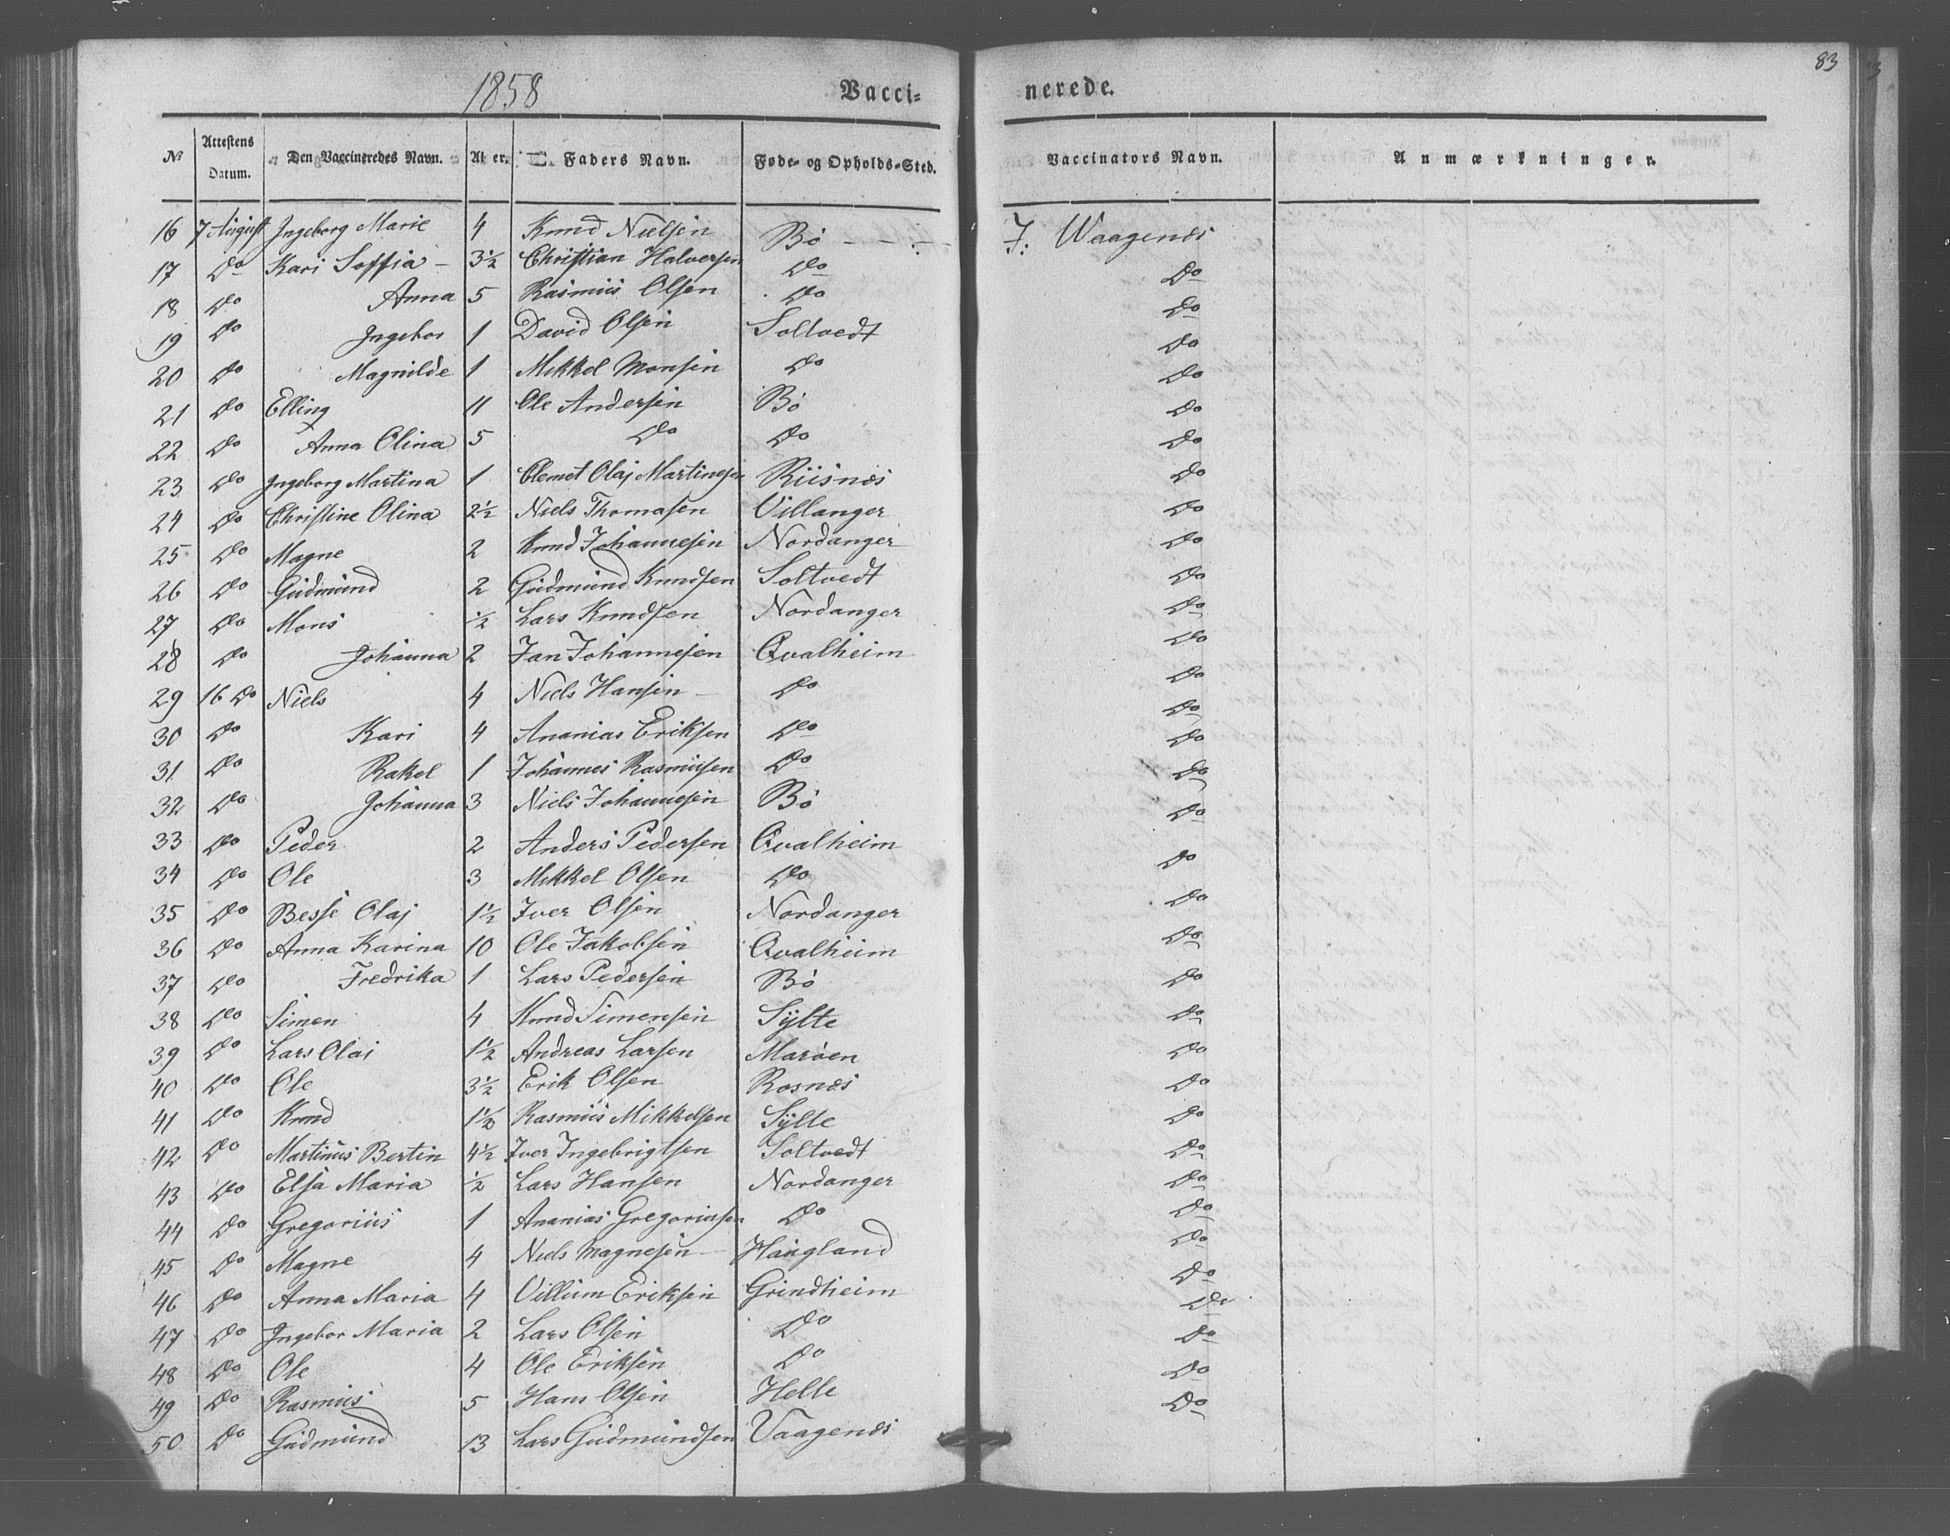 83
1858 Vacci- nerede.
No Attestens Datum. Den Vaccineredes Navn. Alder. Faders Navn. Føde- og Opholds-Sted. Vaccinators Navn. Anmærkninger.
16 7 August Ingeborg Marie 4 Knud Nielsen Bö J: Waagenæs
17 Do Kari Soffia 3½ Christian Halversen Do Do
18 Do Anna 5 Rasmus Olsen Do Do
19 Do Ingebor 1 David Olsen Soltvedt Do
20 Do Magnilde 1 Mikkel Monsen Do Do
21 Do Elling 11 Ole Andersen Bö Do
22 Do Anna Olina 5 Do Do Do
23 Do Ingeborg Martina 1 Clemet Olaj Martinesen Riisnæs Do
24 Do Christine Olina 2½ Niels Thomasen Villanger Do
25 Do Magne 2 Knud Johannesen Nordanger Do
26 Do Gudmund 2 Gudmund Knudsen Soltvedt Do
27 Do Mons ½ Lars Knudsen Nordanger Do
28 Do Johanna 2 Jan Johannesen Qvalheim Do
29 16 Do Niels 4 Niels Hansen Do Do
30 Do Kari 4 Ananias Eriksen Do Do
31 Do Rakel 1 Johannes Rasmusen Do Do
32 Do Johanna 3 Niels Johannesen Bö Do
33 Do Peder 2 Anders Pedersen Qvalheim Do
34 Do Ole 3 Mikkel Olsen Do Do
35 Do Besse Olaj 1½ Iver Olsen Nordanger Do
36 Do Anna Karina 10 Ole Jakobsen Qvalheim Do
37 Do Fredrika 1 Lars Pedersen Bö Do
38 Do Simen 4 Knud Simensen Sylte Do
39 Do Lars Olai 1½ Andreas Larsen Maröen Do
40 Do Ole 3½ Erik Olsen Rosnæs Do
41 Do Knud 1½ Rasmus Mikkelsen Sylte Do
42 Do Martinus Bertin 4½ Iver Ingebrigtsen Soltvedt Do
43 Do Elsa Maria ½ Lars Hansen Nordanger Do
44 Do Gregorius 1 Ananias Gregoriusen Do Do
45 Do Magne 4 Niels Magnesen Haugland Do
46 Do Anna Maria 4 Villum Eriksen Grindheim Do
47 Do Ingebor Maria 2 Lars Olsen Do Do
48 Do Ole 4 Ole Eriksen Do Do
49 Do Rasmus 5 Hans Olsen Helle Do
50 Do Gudmund 13 Lars Gudmundsen Vaagenæs Do